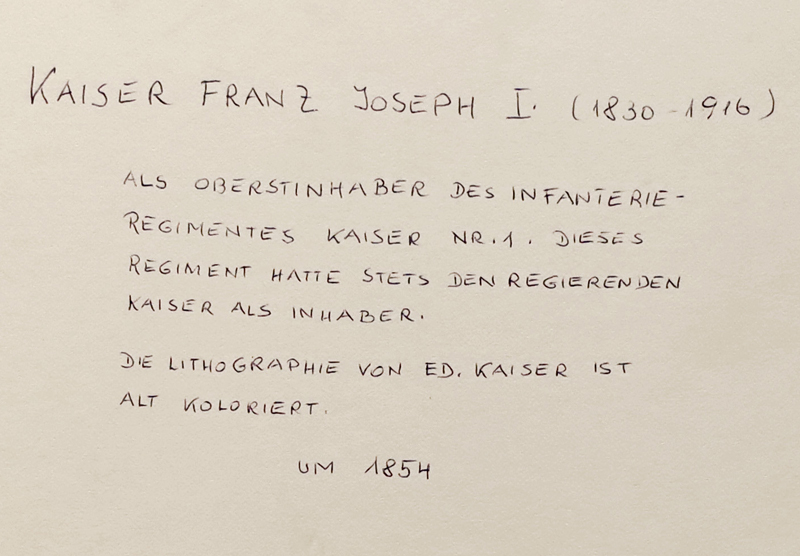 KAISER FRANZ JOSEPH I. (1830-1916)
ALS OBERSTINHABER DES INFANTERIE-
REGIMENTES KAISER NR.1. DIESES
REGIMENT HATTE STETS DEN REGIERENDEN
KAISER ALS INHABER.
DIE LITHOGRAPHIE VON ED. KAISER IST
ALT KOLORIERT.
UM 1854